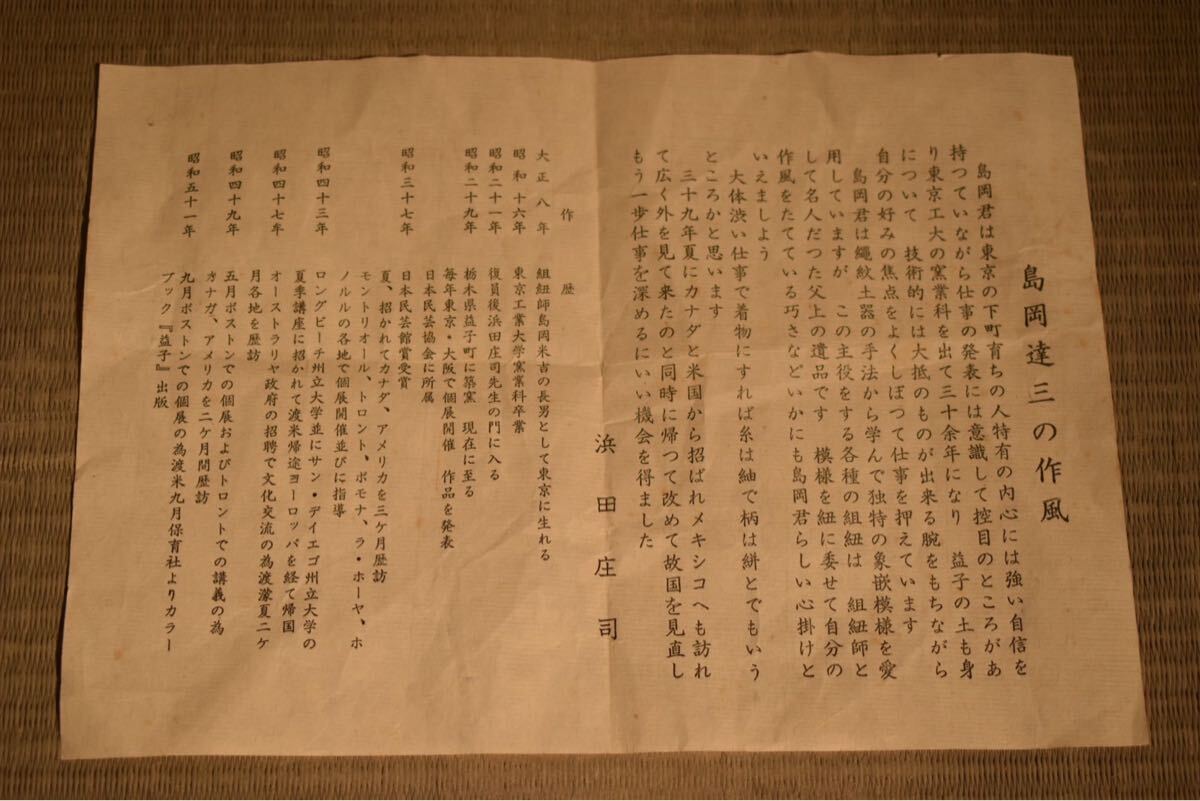 島岡達三の作風
島岡君は東京の下町育ちの人特有の内心には強い自信を
持つていながら仕事の発表には意識して控目のところがあ
り東京工大の窯業科を出て三十余年になり 益子の土も身
について 技術的には大抵のものが出来る腕をもちながら
自分の好みの焦点をよくしぼつて仕事を押えています
島岡君は繩紋土器の手法から学んで独特の象嵌模様を愛
用していますが この主役をする各種の組紐は 組紐師と
して名人だつた父上の遺品です 模様を紐に委せて自分の
作風をたてている巧さなどいかにも島岡君らしい心掛けと
いえましよう
大体渋い仕事で着物にすれば糸は紬で柄は絣とでもいう
ところかと思います
三十九年夏にカナダと米国から招ばれメキシコへも訪れ
て広く外を見て来たのと同時に帰つて改めて故国を見直し
もう一歩仕事を深めるにいい機会を得ました
浜田庄司
作歴
大正八年 組紐師島岡米吉の長男として東京に生れる
昭和十六年 東京工業大学窯業科卒業
昭和二十一年 復員後浜田庄司先生の門に入る
昭和二十九年 栃木県益子町に築窯 現在に至る
毎年東京・大阪で個展開催 作品を発表
日本民芸協会に所属
昭和三十七年 日本民芸館賞受賞
夏、招かれてカナダ、アメリカを三ケ月歴訪
モントリオール、トロント、ポモナ、ラ・ホーヤ、ホ
ノルルの各地で個展開催並びに指導
昭和四十三年 ロングビーチ州立大学並にサン・デイエゴ州立大学の
夏季講座に招かれて渡米帰途ヨーロッパを経て帰国
昭和四十七年 オーストラリヤ政府の招聘で文化交流の為渡濠夏二ケ
月各地を歴訪
昭和四十九年 五月ボストンでの個展およびトロントでの講義の為
カナガ、アメリカを二ケ月間歴訪
昭和五十一年 九月ボストンでの個展の為渡米九月保育社よりカラー
ブック『益子』出版